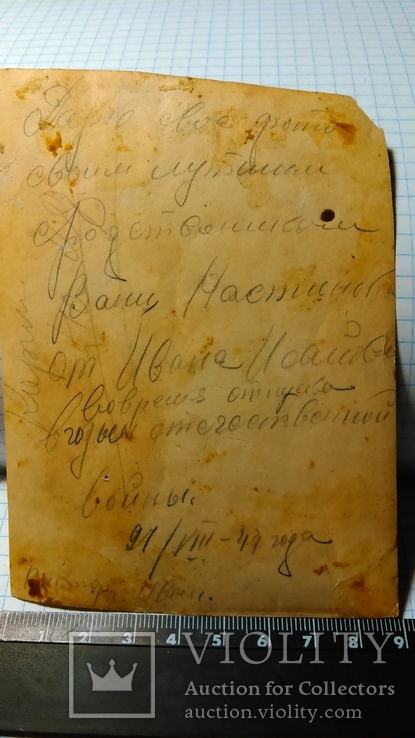 Дарю свое фото
своим лутшим
родственникам
Вани,
от Ивана
вовремя отпуска
в годы отечественной
войны.
21/VIII-44 года
1 2 3 4 5 6 7 8 9
VIOLITY
Auction for Collectors
auction.violity.com